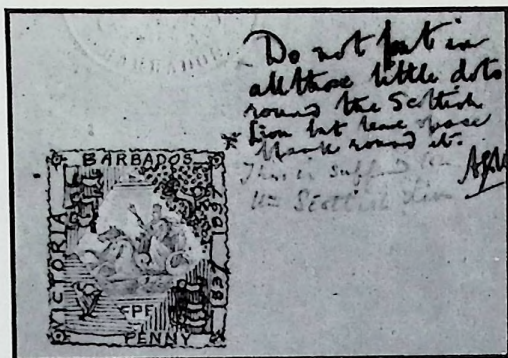 Do not put in
all those little dots
round the Scottish
Lion but leave space
blank round it.
This is
Scottish Lion
BARBADOS
VICTORIA
1897
1837
PENNY